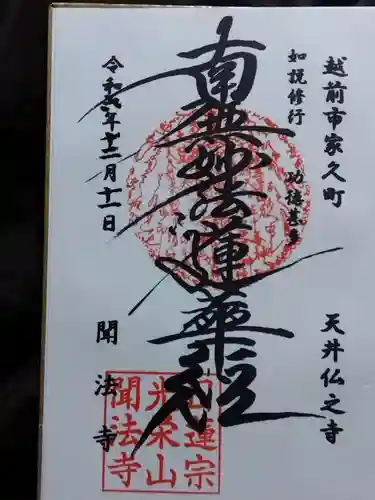 越前市家久町
天井仏之寺
如説修行 功徳甚多
南無妙法蓮華経
令和六年十二月十一日
聞法寺
日蓮宗
光栄山
聞法寺